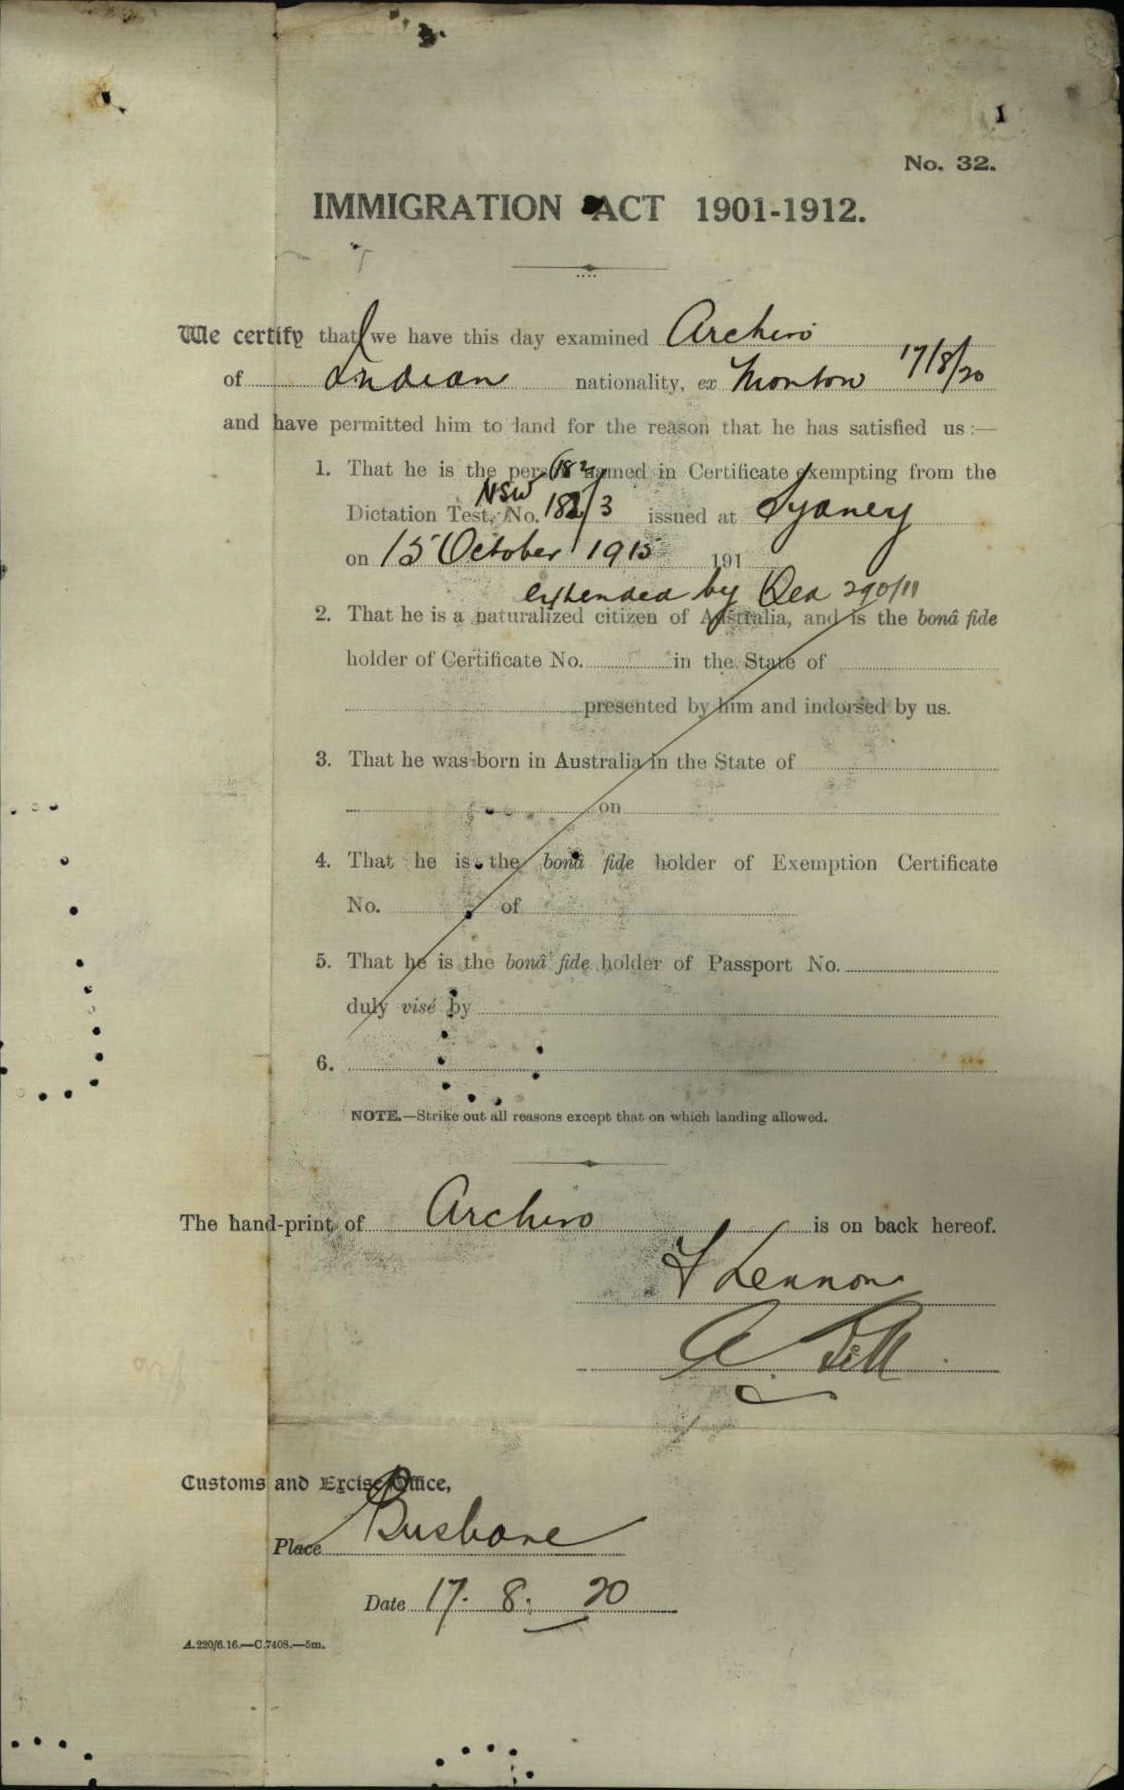 1
No. 32.
IMMIGRATION ACT 1901-1912.
We certify that we have this day examined Archiro
of Indian nationality, ex Monton 17/8/20
and have permitted him to land for the reason that he has satisfied us:—
1. That he is the person named in Certificate exempting from the
NSW 182
Dictation Test, No. 182/3 issued at Sydney
on 15 October 1915 191
extended by Qld 290/11
2. That he is a naturalized citizen of Australia, and is the bonâ fide
holder of Certificate No. in the State of
presented by him and indorsed by us.
3. That he was born in Australia in the State of
on
4. That he is the bonâ fide holder of Exemption Certificate
No. of
5. That he is the bonâ fide holder of Passport No.
duly visé by
6.
NOTE.—Strike out all reasons except that on which landing allowed.
The hand-print of Archiro is on back hereof.
F Lennon
A.
Customs and Excise Office,
Place Brisbane
Date 17. 8. 20
A.220/6.16.—C.7408.—5m.